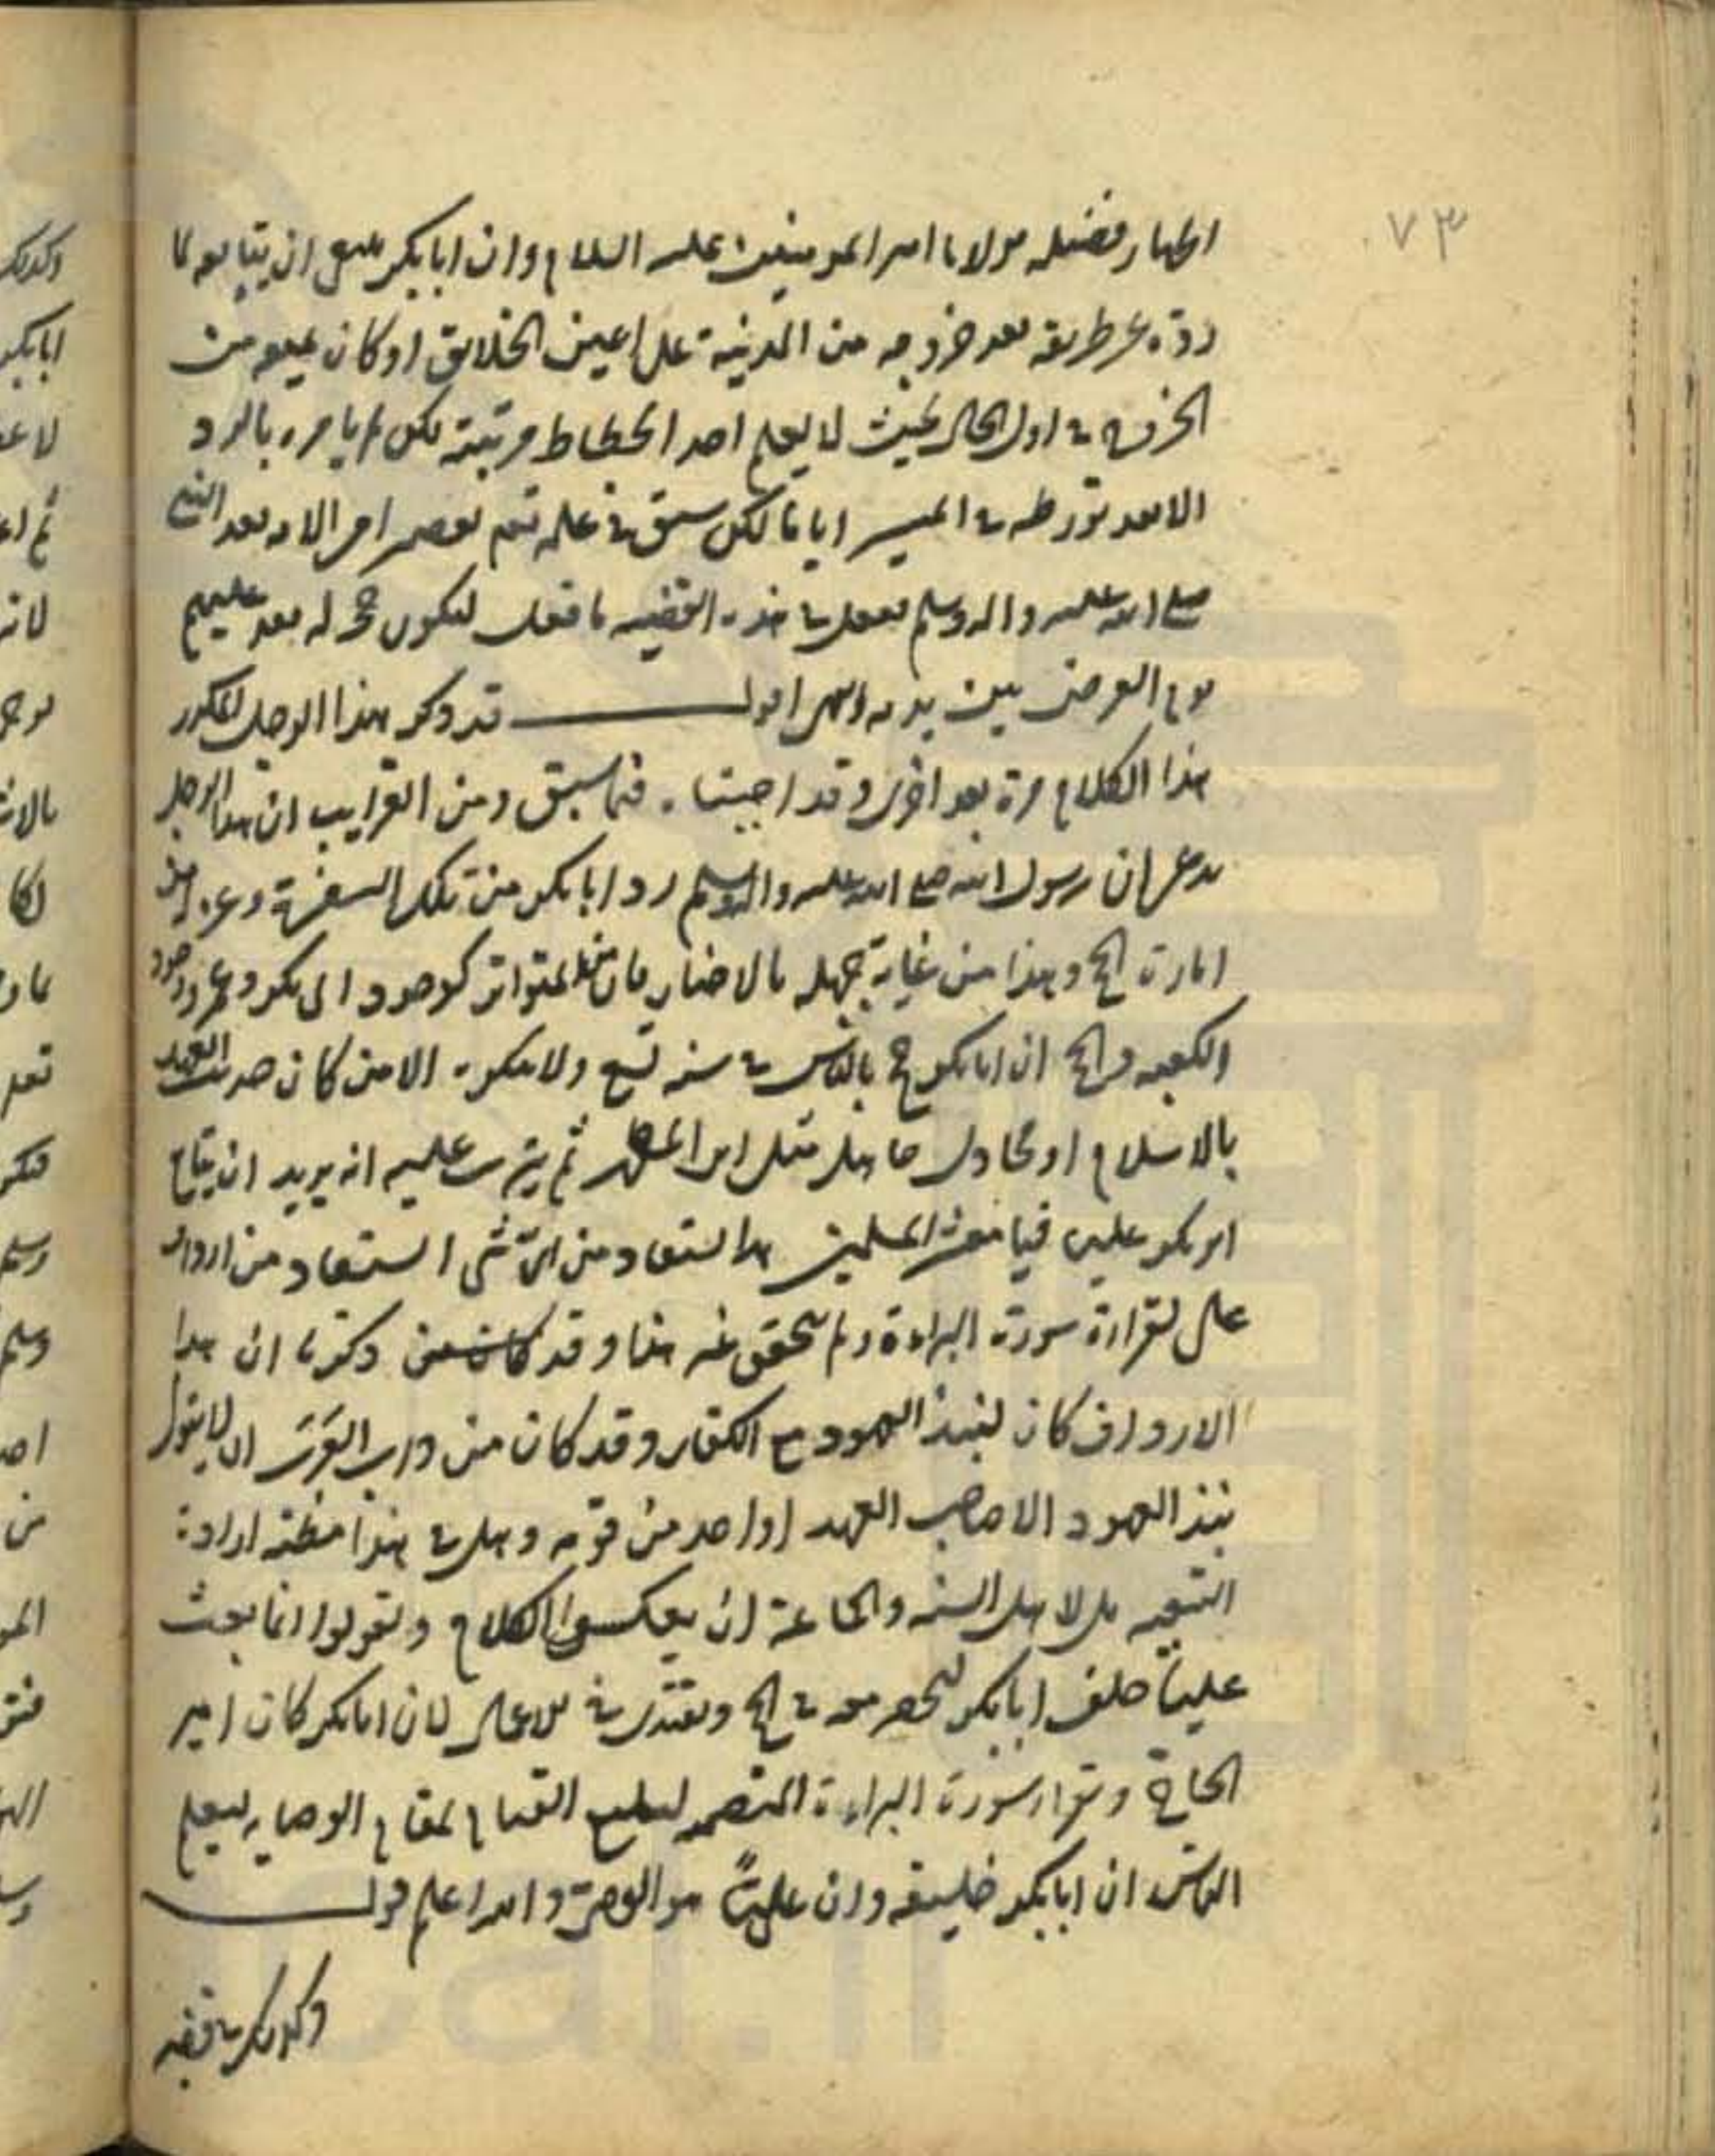 ٧٣
اظهار فضيله مولانا امير المومنين عليه السلام وان ابابكر ان يتابعه لما
رده عن طريقه بعد خروجه من المدينة على اعين الخلايق او كان يمنعه من
الخروج في اول الحال بحيث لا يعلم احد انحطاط مرتبته لكن لم يامره بالرد
الا بعد تورطه في المسير اياما لكن سبق في علمه تعصير امر الامه بعد النبي
صلى الله عليه واله وسلم ففعل في هذه القضيه ما فعل ليكون حجة له بعد عليهم
يوم العرض بين يديه انتهى اقول قد ذكر هذا الرجل المكرر
هذا الكلام مرة بعد اخرى وقد اجبنا فيما سبق ومن الغرايب ان هذا الرجل
يدعى ان رسول الله صلى الله عليه واله وسلم رد ابابكر من تلك السفرة وعزله من
امارة الحج وهذا من غاية جهله بالاخبار فان المتواتر كوجود ابى بكر وعمر ووجود
الكعبه والحج ان ابابكر حج بالناس في سنه تسع ولا ينكره الا من كان حديث العهد
بالاسلام او مجادل جاهل مثل ابن المطهر ثم يترتب عليه انه يريد ان يقدم
ابو بكر عليه فيا معشر المسلمين هذا يستفاد من اى شى استفاد من ارداف
على لقراءة سورة البراءة ولم تحقق عنه هذا وقد ذكرنا ان هذا
الارداف كان لنبذ العهود مع الكفار وقد كان من داب العرب ان لا يتولى
نبذ العهود الا صاحب العهد او احد من قومه وهل في هذا مظنه ارادة
التنبيه بل لاهل السنه والجماعة ان يعكسوا الكلام ويقولوا انما بعث
عليا خلف ابابكر ليحضر معه في الحج ويقتدى به للاعمال لان ابابكر كان امير
الحاج وتقرا سورة البراءة المتضمنه لتبليغ القيام لمقام الوصايه ليعلم
الناس ان ابابكر خليفه وان عليا هو الوصى والله اعلم قول
وكذلك في قضيه